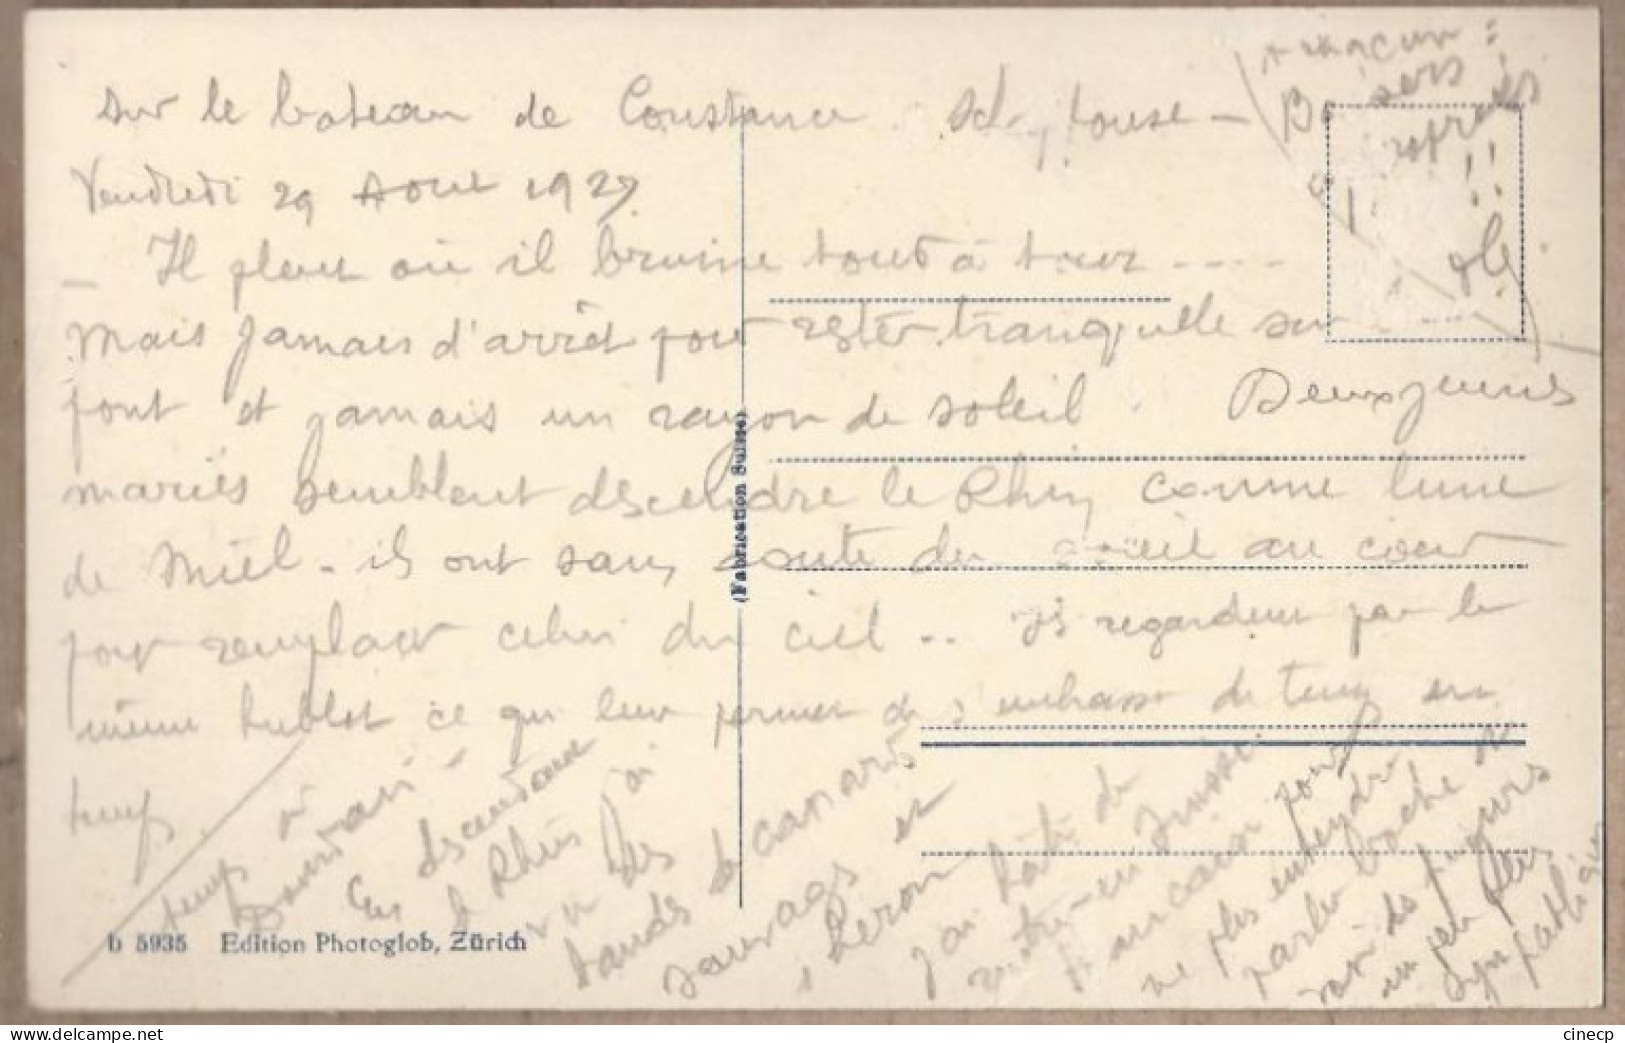 sur le bateau de Constance Sch house –
Vendredi 29 Aout 1927
– Il pleut où il bruine tout à tour ....
mais jamais d'arrêt pour rester tranquille sur
pont et jamais un rayon de soleil. Deux jeunes
mariés semblent descendre le Rhin comme lune
de Miel – ils ont sans doute du soleil au coeur
pour remplacer celui du ciel .. ils regardent par le
même hublot ce qui leur permet de s'embrasser de temps en
temps.
En descendant
le Rhin j'ai
vu des
bandes de canards
sauvages et
héron
j'ai hâte de
rentrer en Suisse
pour
ne plus entendre
parler boche et
voir des paysages
un peu plus
sympathiques
à chacun :
Baisers
!!
(Fabrication Suisse)
b 5935 Edition Photoglob, Zürich
cinecp